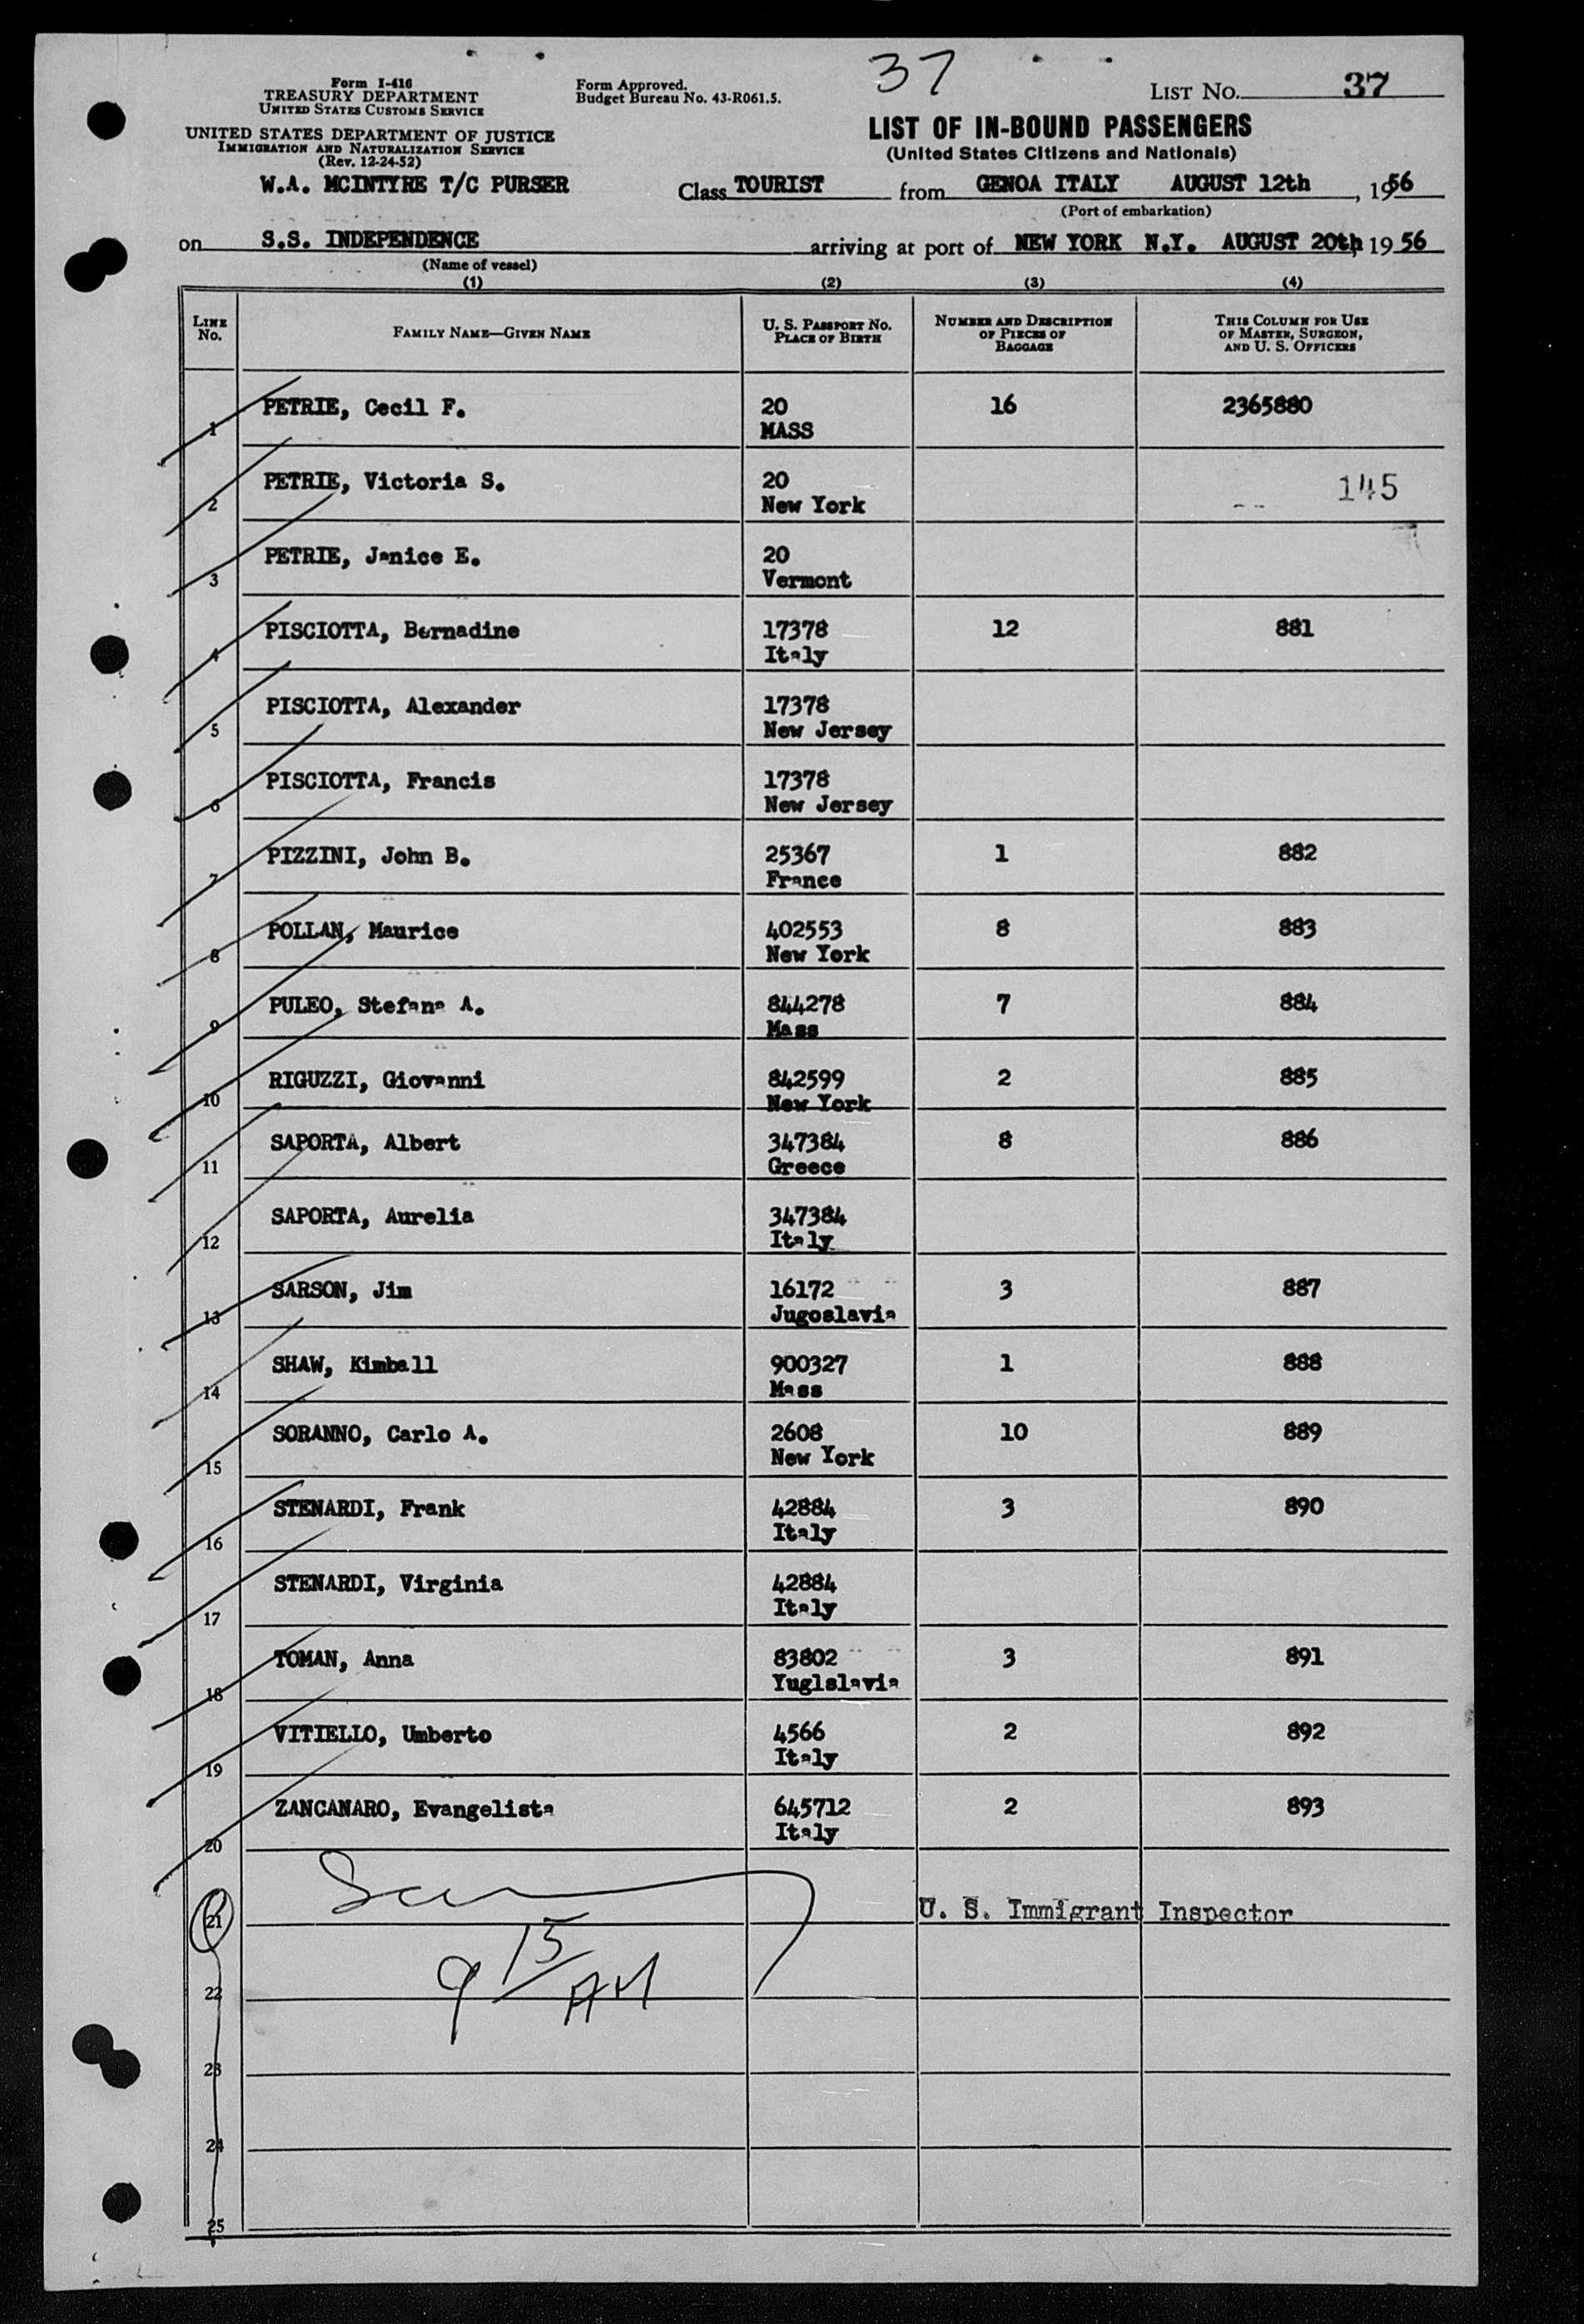 37
Form I-416
TREASURY DEPARTMENT
UNITED STATES CUSTOMS SERVICE
UNITED STATES DEPARTMENT OF JUSTICE
IMMIGRATION AND NATURALIZATION SERVICE
(Rev. 12-24-52)
Form Approved.
Budget Bureau No. 43-R061.5.
LIST No. 37
LIST OF IN-BOUND PASSENGERS
(United States Citizens and Nationals)
W.A. MCINTYRE T/C PURSER Class TOURIST from GENOA ITALY AUGUST 12th, 1956
(Port of embarkation)
on S.S. INDEPENDENCE arriving at port of NEW YORK N.Y. AUGUST 20th, 1956
(Name of vessel)
(1) (2) (3) (4)
LINE No. FAMILY NAME—GIVEN NAME U. S. PASSPORT No. PLACE OF BIRTH NUMBER AND DESCRIPTION OF PIECES OF BAGGAGE THIS COLUMN FOR USE OF MASTER, SURGEON, AND U. S. OFFICERS
1 PETRIE, Cecil F. 20 16 2365880
MASS
2 PETRIE, Victoria S. 20 145
New York
3 PETRIE, Janice E. 20
Vermont
4 PISCIOTTA, Bernadine 17378 12 881
Italy
5 PISCIOTTA, Alexander 17378
New Jersey
6 PISCIOTTA, Francis 17378
New Jersey
7 PIZZINI, John B. 25367 1 882
France
8 POLLAN, Maurice 402553 8 883
New York
9 PULEO, Stefana A. 844278 7 884
Mass
10 RIGUZZI, Giovanni 842599 2 885
New York
11 SAPORTA, Albert 347384 8 886
Greece
12 SAPORTA, Aurelia 347384
Italy
13 SARSON, Jim 16172 3 887
Jugoslavia
14 SHAW, Kimball 900327 1 888
Mass
15 SORANNO, Carlo A. 2608 10 889
New York
16 STENARDI, Frank 42884 3 890
Italy
17 STENARDI, Virginia 42884
Italy
18 TOMAN, Anna 83802 3 891
Yuglslavia
19 VITIELLO, Umberto 4566 2 892
Italy
20 ZANCANARO, Evangelista 645712 2 893
Italy
21 U. S. Immigrant Inspector
9 15/AM
22
23
24
25